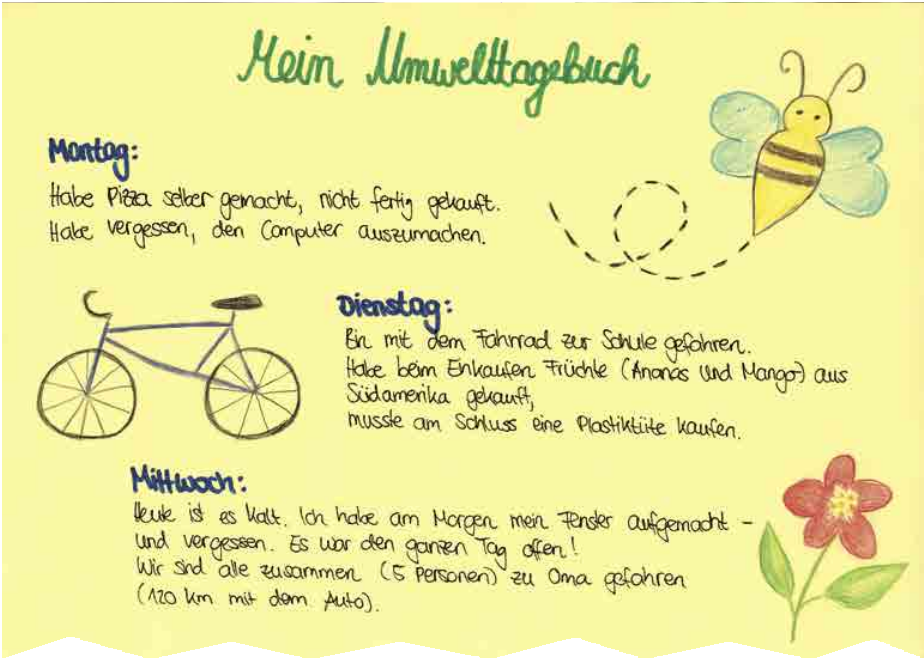 Mein Umwelttagebuch
Montag:
Habe Pizza selber gemacht, nicht fertig gekauft.
Habe vergessen, den Computer auszumachen.
Dienstag:
Bin mit dem Fahrrad zur Schule gefahren.
Habe beim Einkaufen Früchte (Ananas und Mango) aus
Südamerika gekauft,
musste am Schluss eine Plastiktüte kaufen.
Mittwoch:
Heute ist es kalt. Ich habe am Morgen mein Fenster aufgemacht –
und vergessen. Es war den ganzen Tag offen!
Wir sind alle zusammen (5 Personen) zu Oma gefahren
(120 km mit dem Auto).